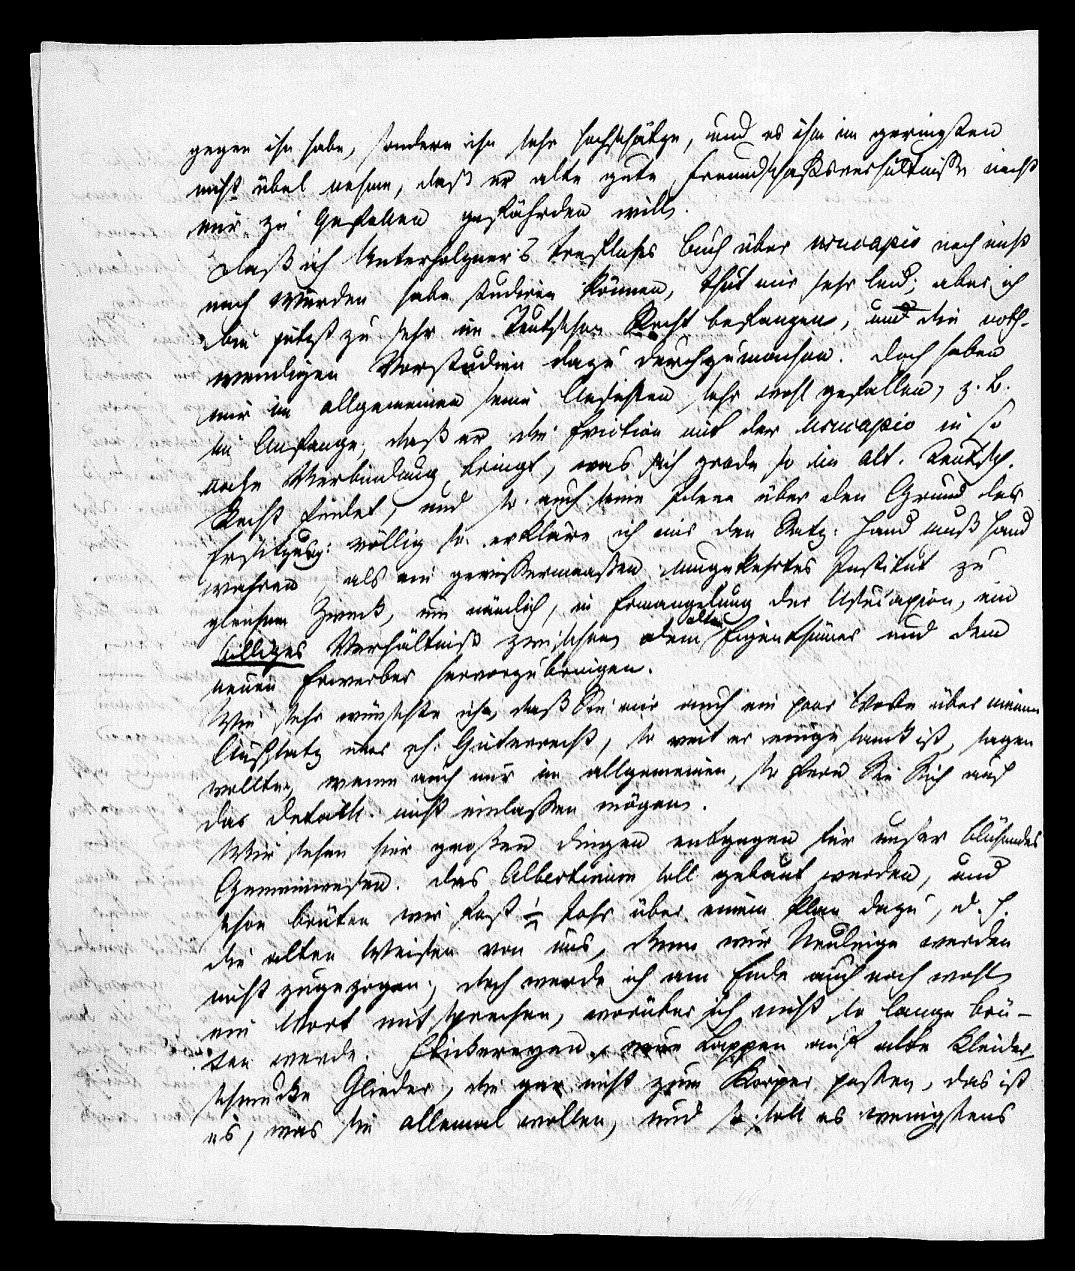 gegen ihn habe, sondern ihn sehr hochschätze, und es ihm im geringsten
nicht übel nehme, daß er alte gute Freundschaftsverhältnisse nicht
mir zu Gefallen gefährden will.
Daß ich Unterholzner's treffliches Buch über usucapio noch nicht
nach Würden habe studiren können, thut mir sehr leid; aber ich
bin jetzt zu sehr im Teutschen Recht befangen, um die noth-
wendigen Vorstudien dazu durchzumachen. Doch haben
mir im allgemeinen seine Ansichten sehr wohl gefallen, z. B.
im Anfange, daß er die fruction mit der usucapio in so
nahe Verbindung bringt, was sich grade so im alt. Teutsch.
Recht findet und so auch seine Ideen über den Grund des
Ersitzung: völlig so erkläre ich mir den Satz: Hand muß Hand
wahren als ein gewissermaaßen umgekehrtes Institut zu
gleichem Zweck, um nämlich, in Ermangelung der Usucapion, ein
billiges Verhältniß zwischen dem alten Eigenthümer und dem
neuen Erwerber hervorzubringen.
Wie sehr wünschte ich, daß Sie mir auch ein paar Worte über meinen
Aufsatz über eh. Güterrecht, so weit er eingesandt ist, sagen
wollten, wenn auch nur im allgemeinen, sofern Sie Sich auf
das Detail nicht einlassen mögen.
Wir sehen hier großen Dingen entgegen für unser blühendes
Gemeinwesen. Das Albertinum soll gebaut werden, und
schon brüten wir fast ½ Jahr über einem Plan dazu, d. h.
die alten Weisen von uns, denn wir Neulinge werden
nicht zugezogen; doch werde ich am Ende auch noch wohl
ein Wort mitsprechen, worüber ich nicht so lange brü-
ten werde. Flickereyen, neue Lappen auf alte Kleider,
schmucke Glieder, die gar nicht zum Körper passen, das ist
es, was sie allemal wollen, und so soll es wenigstens